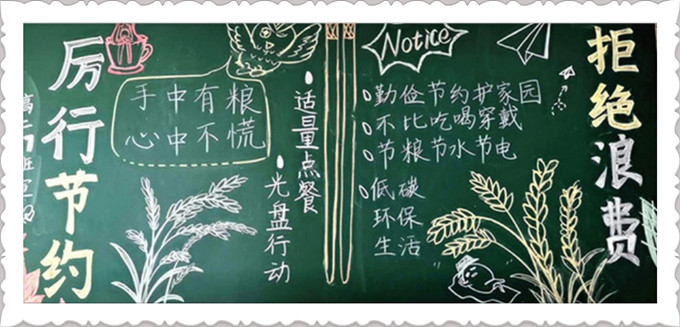 厉行节约
手中有粮
心中不慌
适量点餐
光盘行动
Notice
勤俭节约护家园
不比吃喝穿戴
节粮节水节电
低碳
环保
生活
拒绝浪费